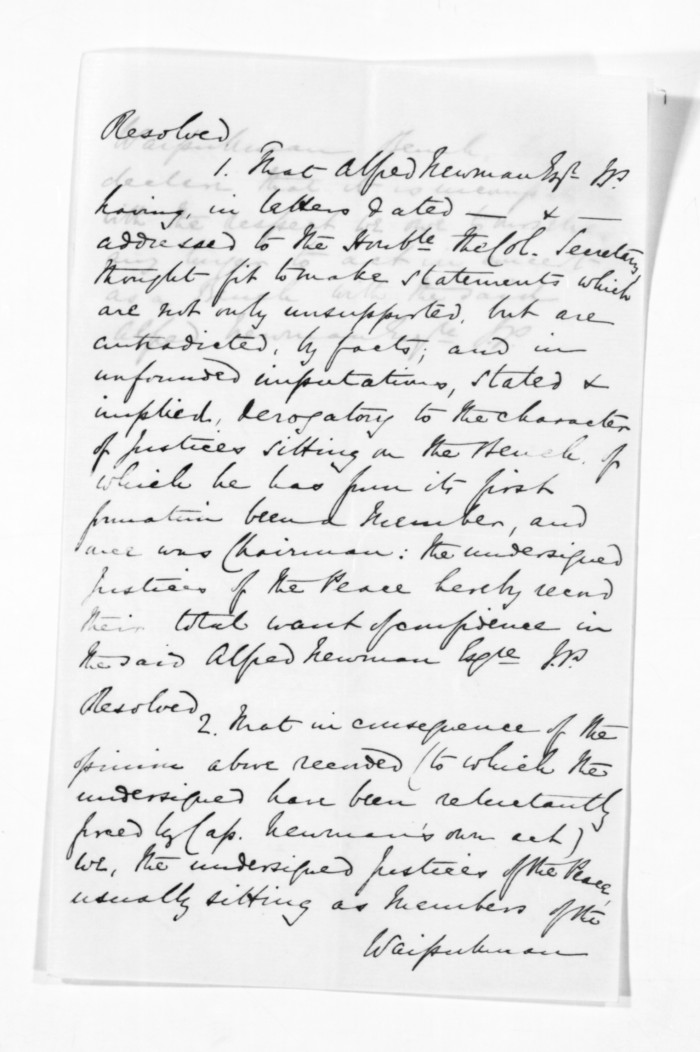 Resolved
1. That Alfred Newman Esqre J.P.
having, in letters dated — & —
addressed to the Honble the Col. Secretary
thought fit to make statements which
are not only unsupported, but are
contradicted, by facts; and in
unfounded imputations, stated &
implied, derogatory to the character
of Justices sitting on the Bench, of
which he has from its first
formation been a Member, and
once was Chairman: the undersigned
Justices of the Peace hereby record
their total want of confidence in
the said Alfred Newman Esqre J.P.
Resolved
2. That in consequence of the
opinion above recorded (to which the
undersigned have been reluctantly
forced by Cap. Newman's own act)
we, the undersigned Justices of the Peace,
usually sitting as Members of the
Waipukurau